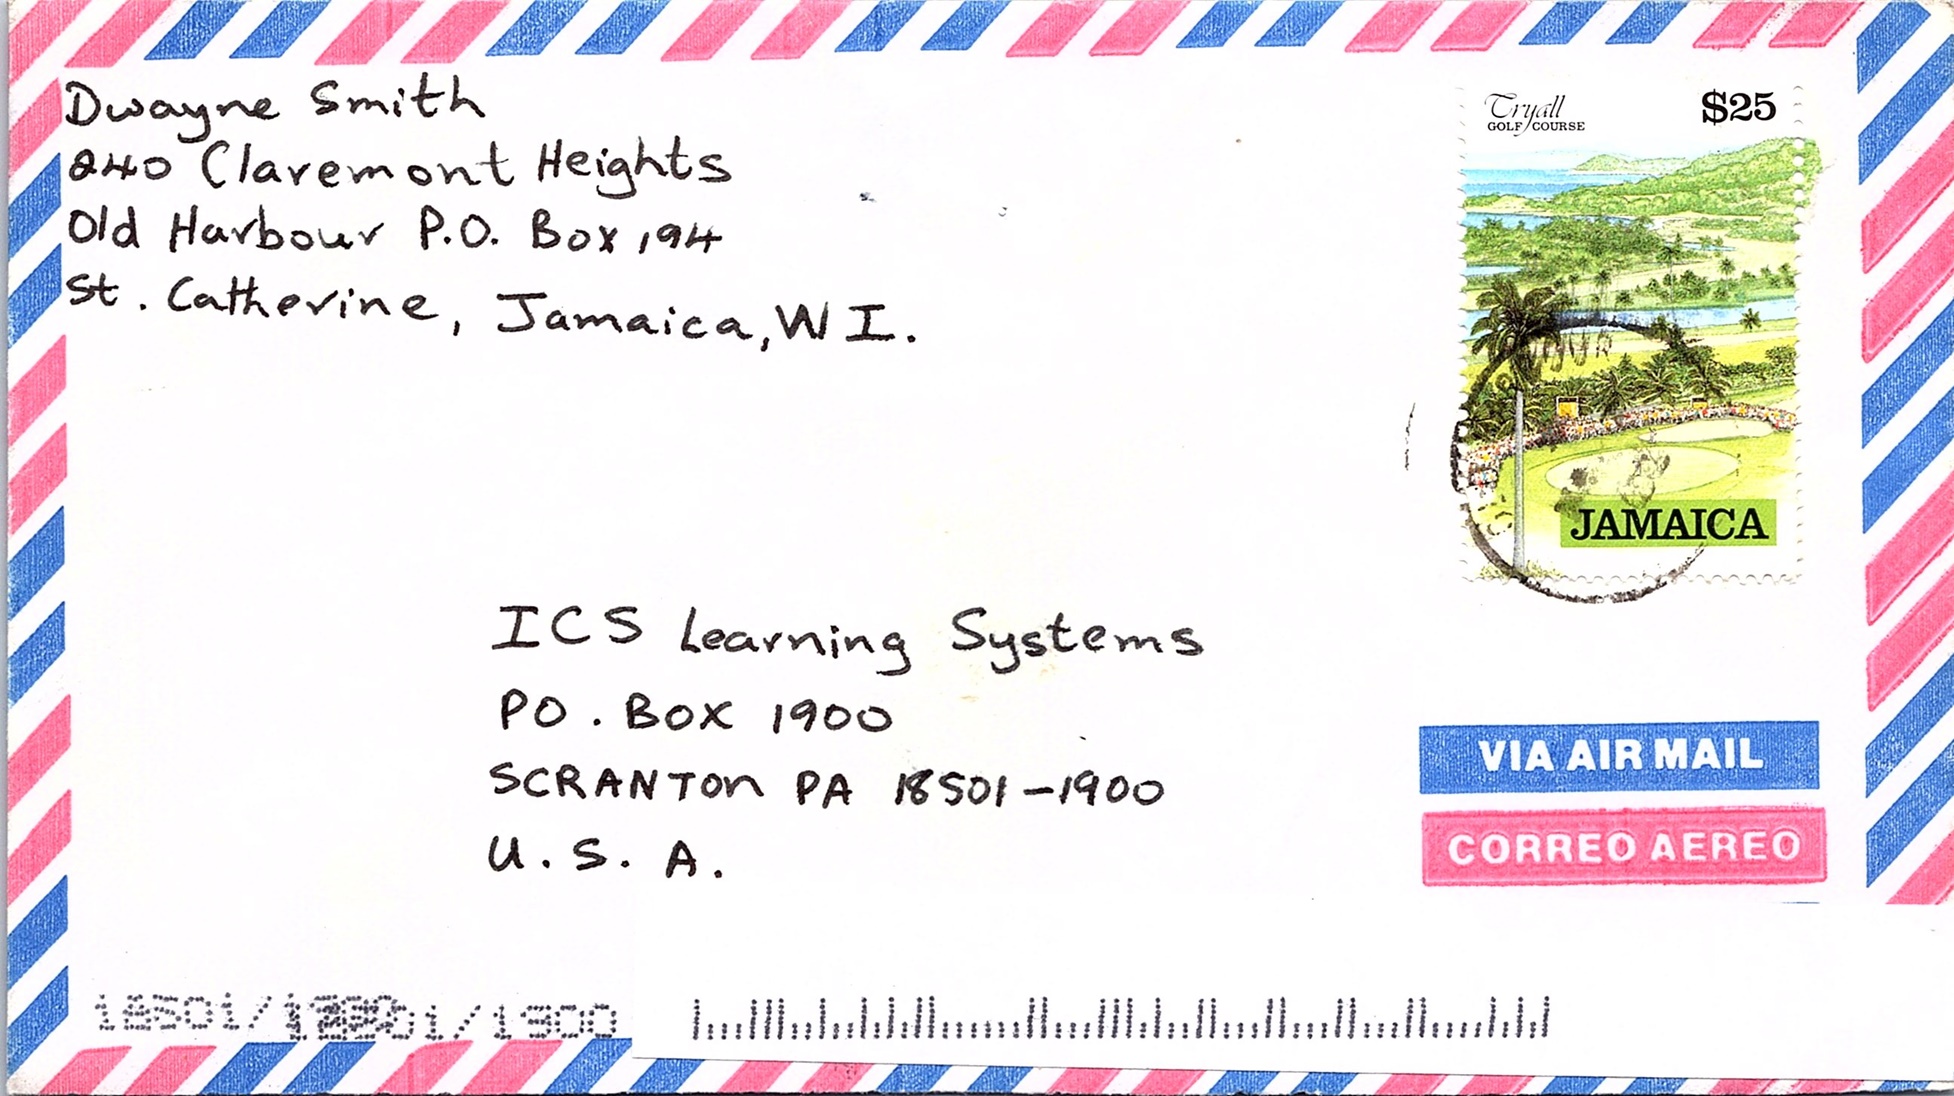 Dwayne Smith
240 Claremont Heights
Old Harbour P.O. Box 194
St. Catherine, Jamaica, W I.
Tryall
GOLF COURSE
$25
JAMAICA
ICS Learning Systems
PO. BOX 1900
SCRANTON PA 18501-1900
U. S. A.
VIA AIR MAIL
CORREO AEREO
18501/1900
18501/1900